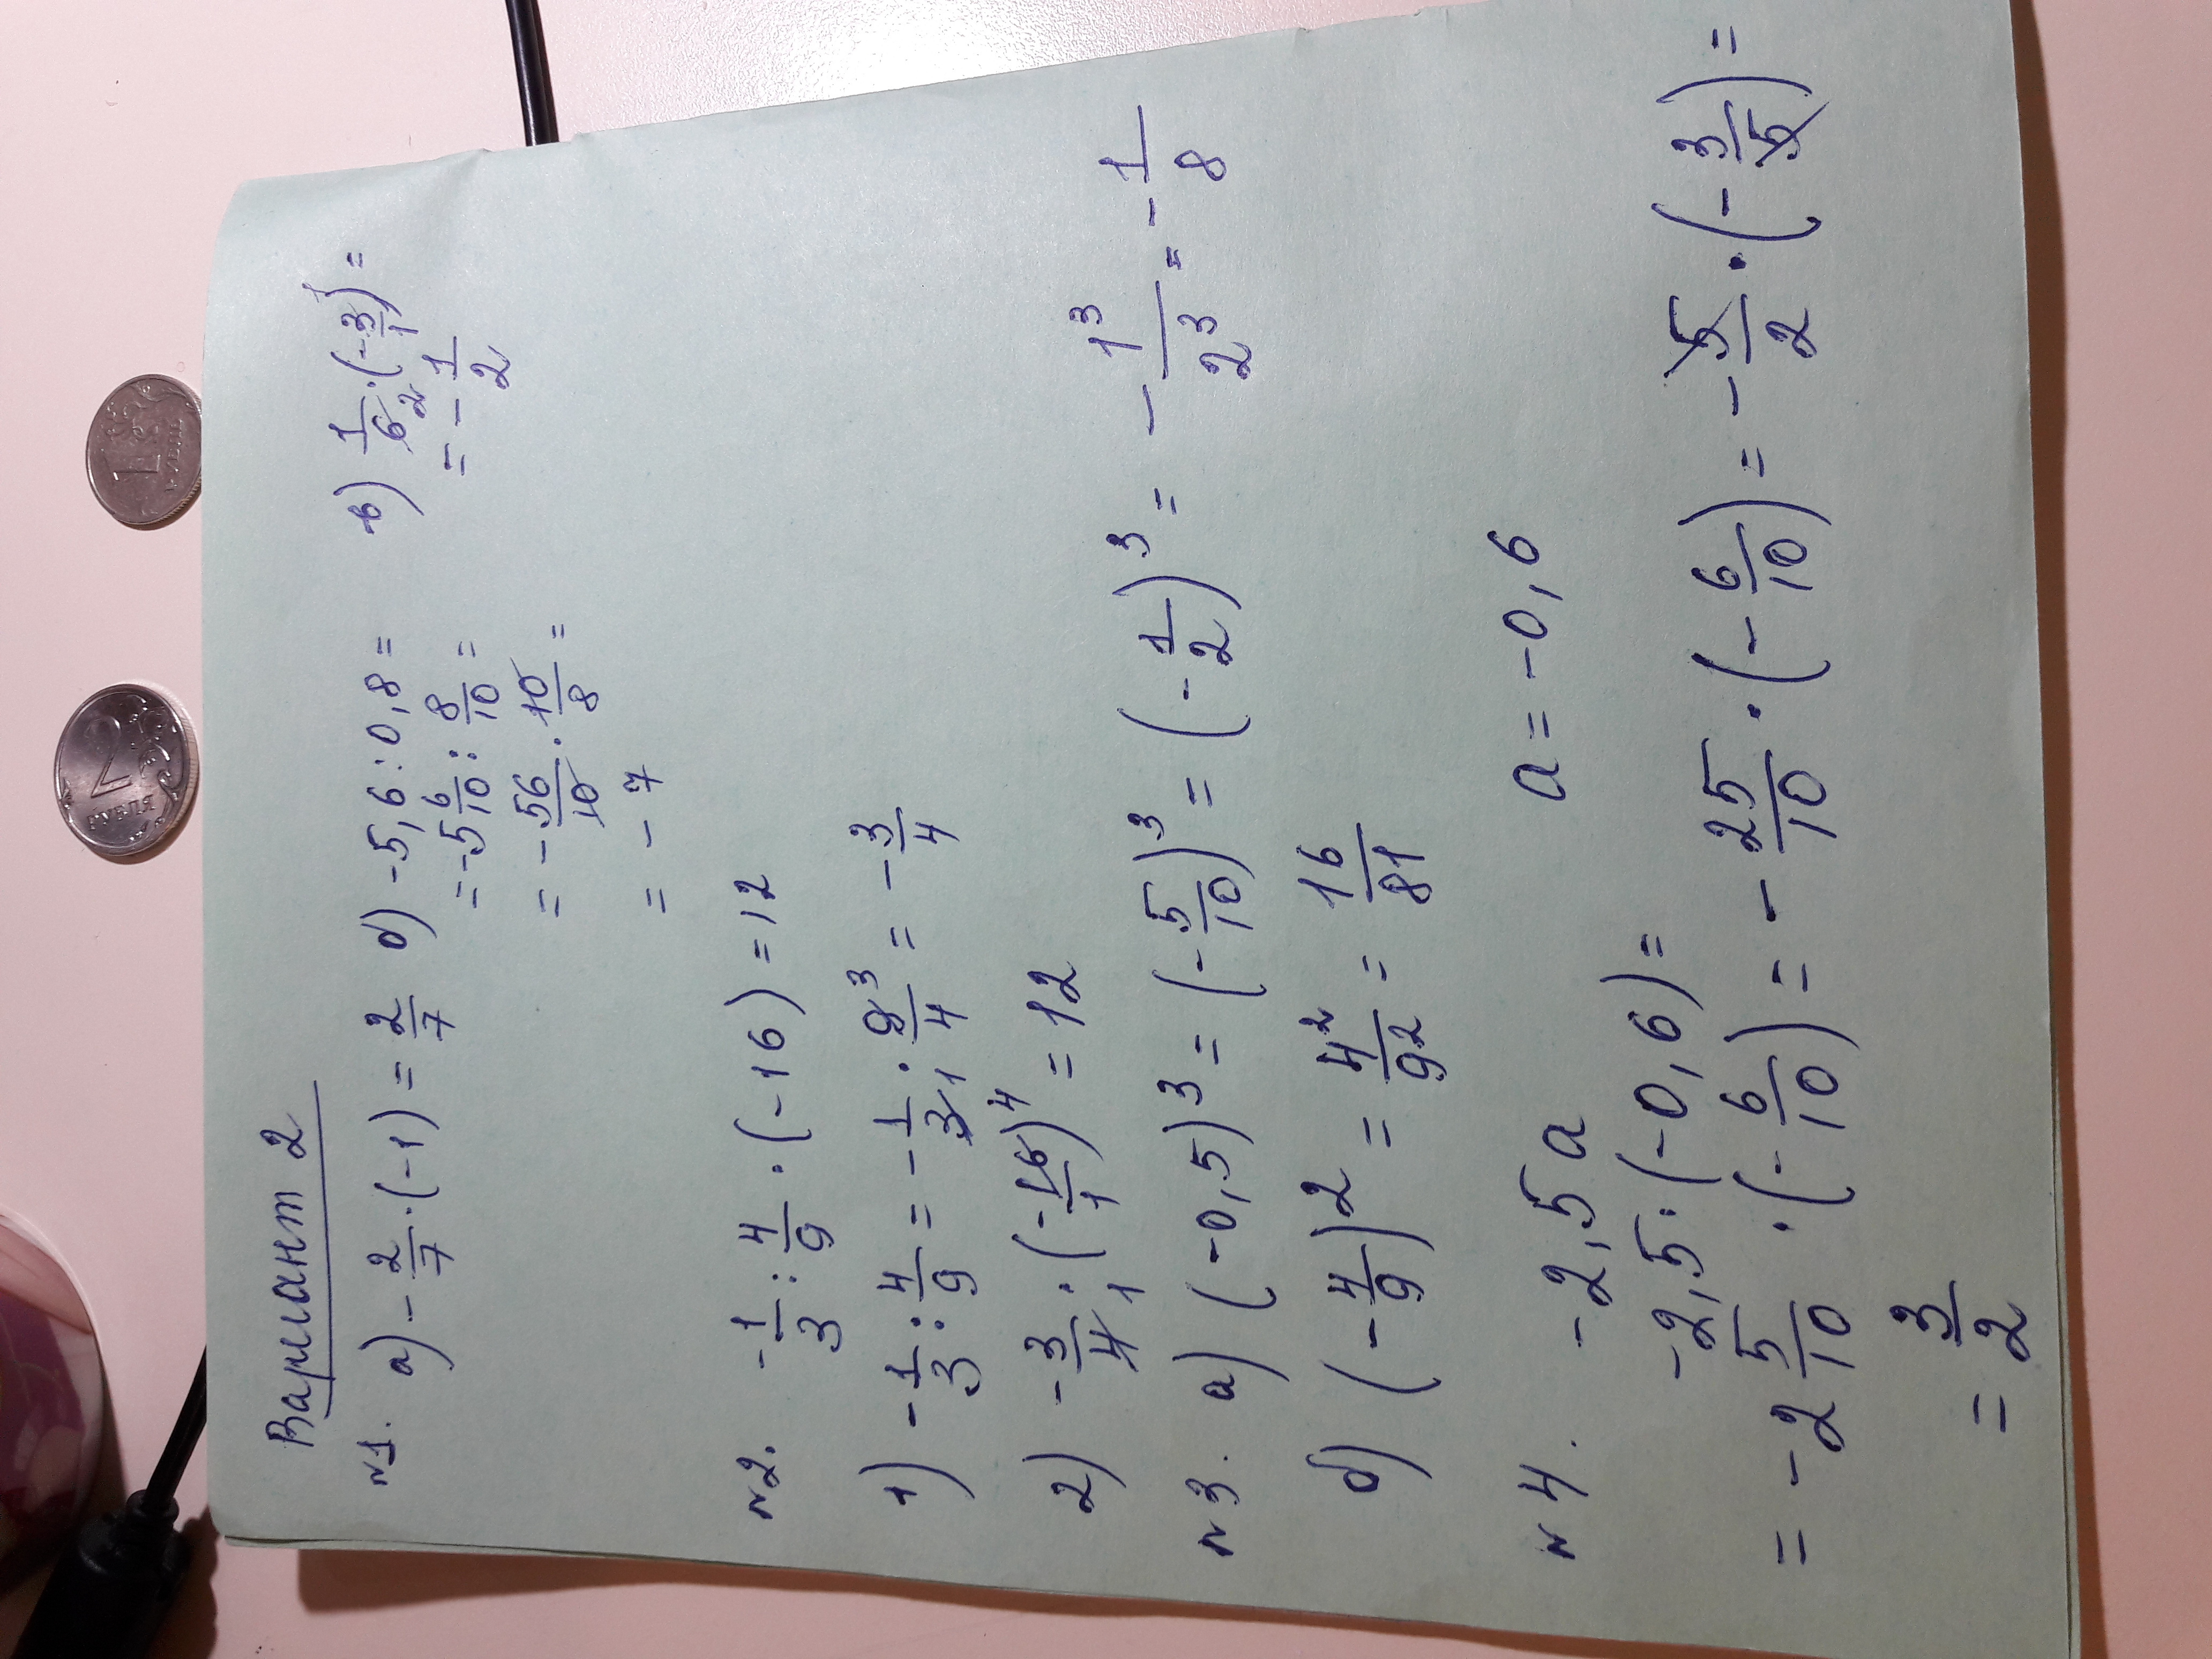 Вариант 2
№1. а) -2/7·(-1) = 2/7 б) -5,6 : 0,8 = в) 1/6·(-3/1) =
= -5 6/10 : 8/10 = = -1/2
= -56/10 · 10/8 =
= -7
№2. -1/3 : 4/9 · (-16) = 12
1) -1/3 : 4/9 = -1/3 · 9/4 = -3/4
2) -3/4 · (-16/1) = 12
№3. а) (-0,5)³ = (-5/10)³ = (-1/2)³ = -1³/2³ = -1/8
б) (-4/9)² = 4²/9² = 16/81
№4. -2,5a a = -0,6
-2,5·(-0,6) =
= -2 5/10 · (-6/10) = -25/10 · (-6/10) = -5/2 · (-3/5) =
= 3/2
2
РУБЛЯ
1
РУБЛЬ